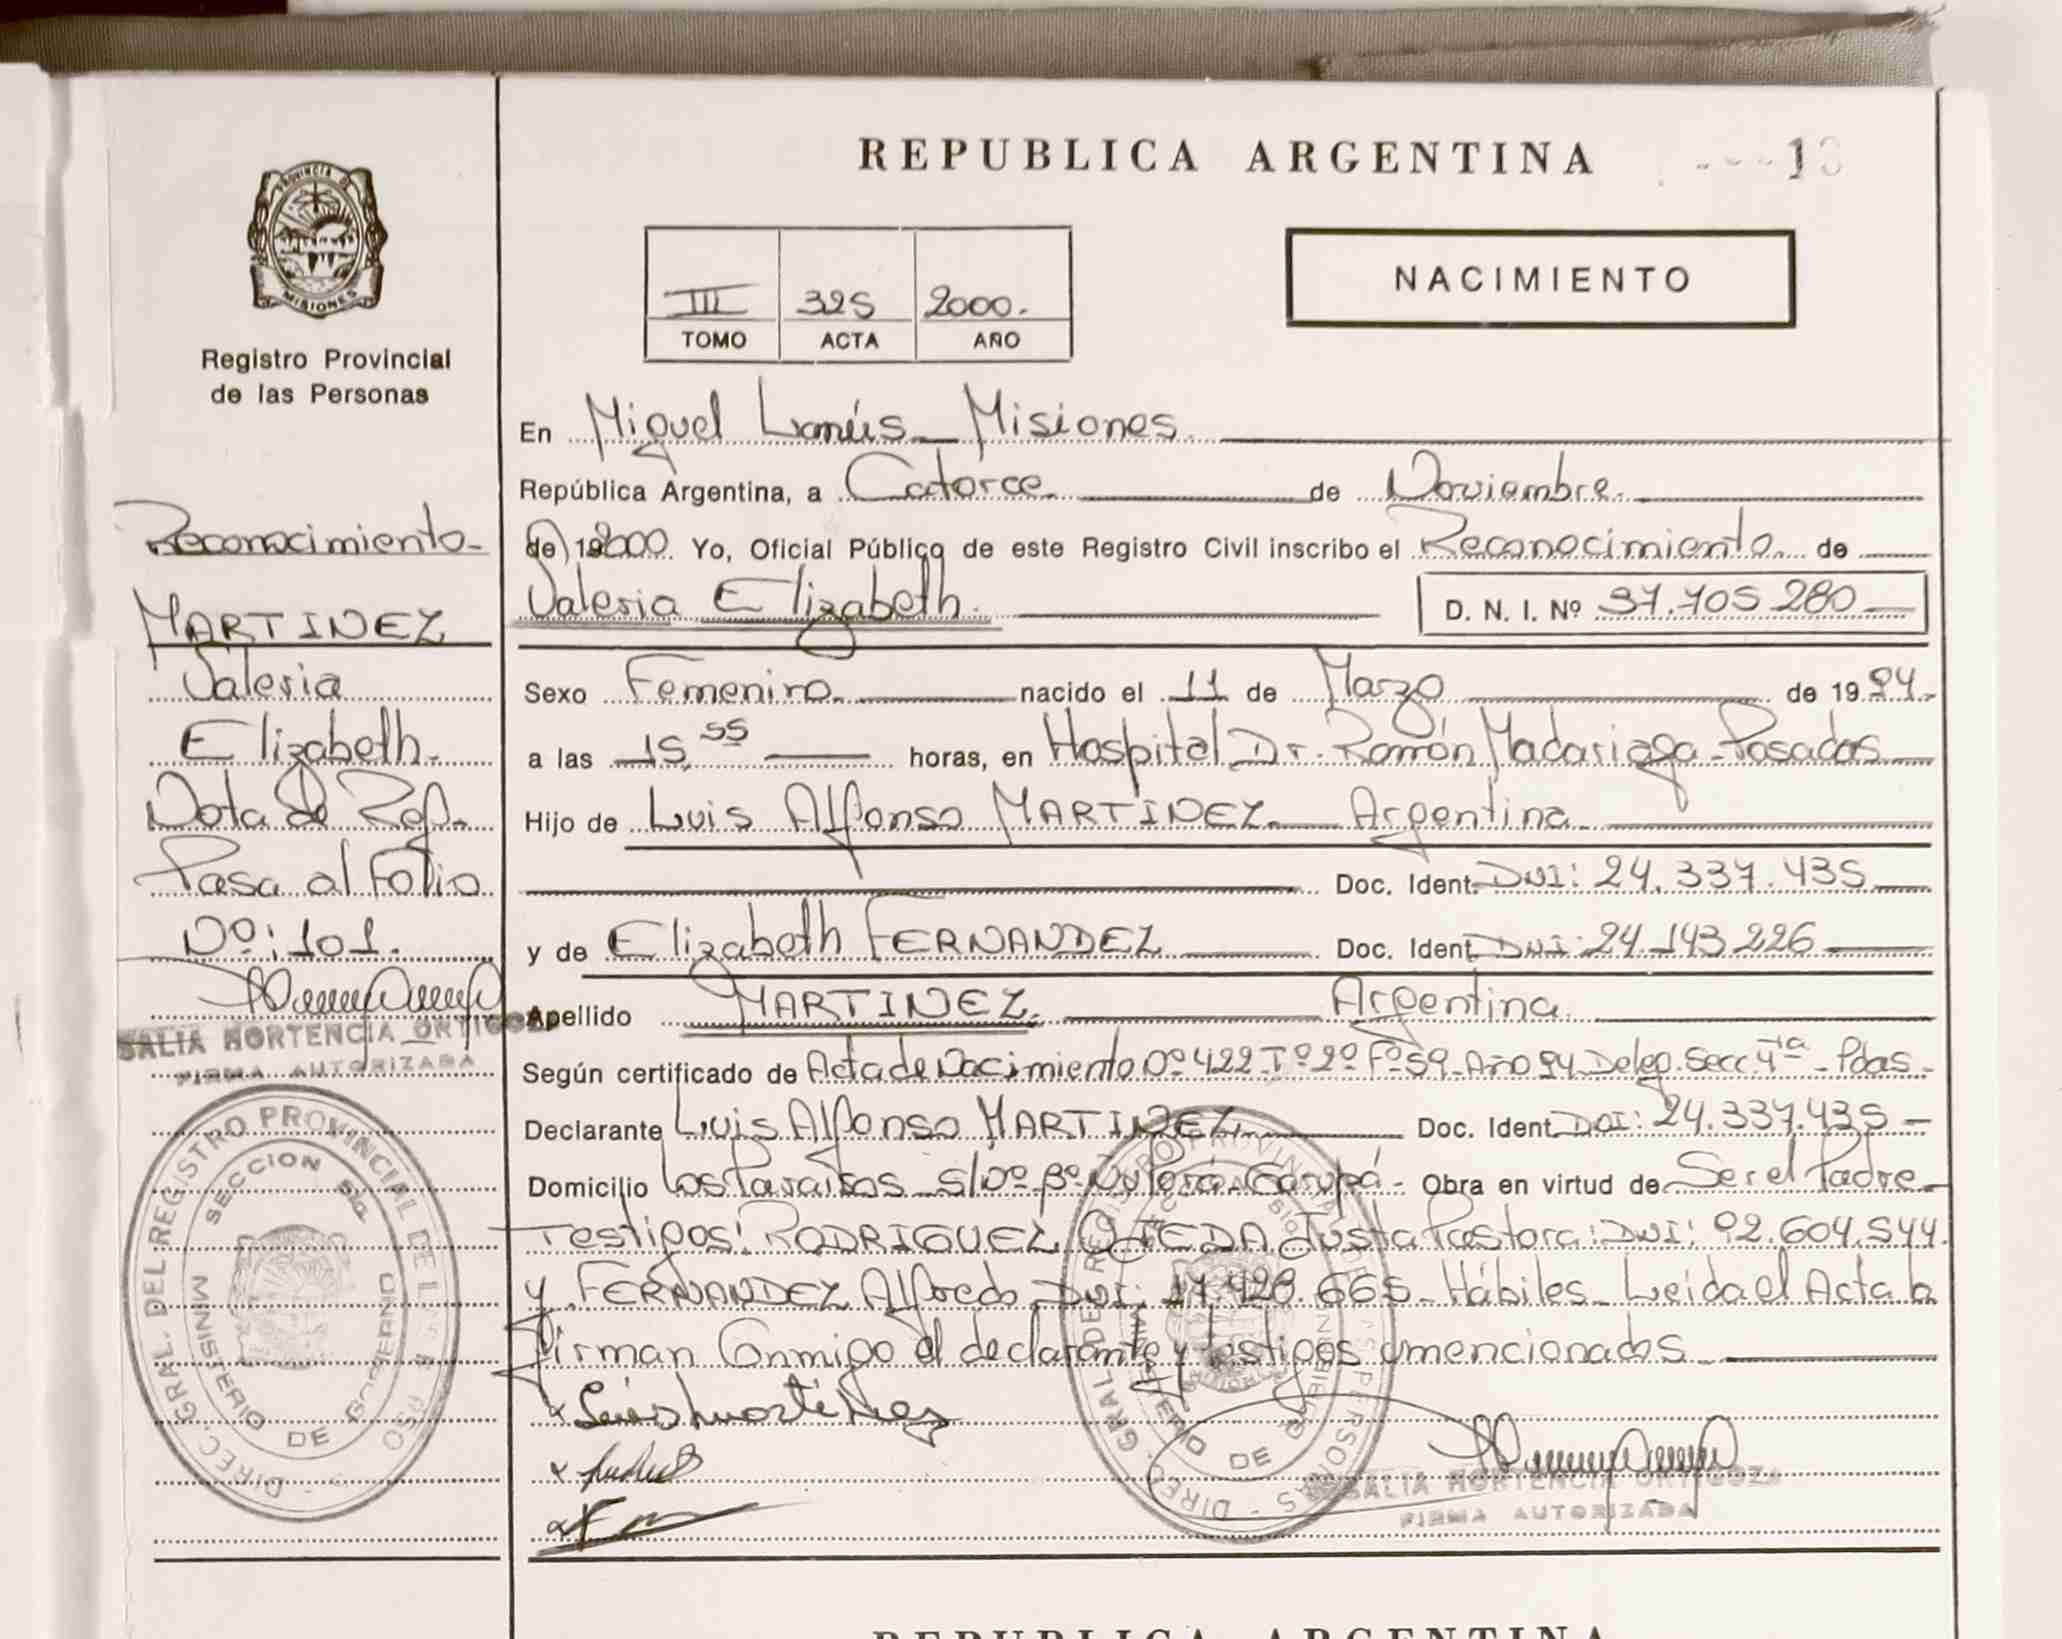 REPUBLICA ARGENTINA
PROVINCIA DE
MISIONES
Registro Provincial
de las Personas
III 325 2000.
TOMO ACTA AÑO
NACIMIENTO
Reconocimiento
MARTINEZ
Valeria
Elizabeth.
Nota de Ref.
Pasa al Folio
Nº: 101.
SALIA HORTENCIA ORTIGOZA
FIRMA AUTORIZADA
DIREC. GRAL. DEL REGISTRO PROVINCIAL DE
SECCION
MINISTERIO DE GOBIERNO
En Miguel Lanús - Misiones.
República Argentina, a Catorce de Noviembre.
de) 19 2000. Yo, Oficial Público de este Registro Civil inscribo el Reconocimiento. de
Valeria Elizabeth. D. N. I. Nº 37.705 280
Sexo Femenino. nacido el 11 de Marzo de 1994.-
a las 15,55 horas, en Hospital Dr. Ramón Madariaga - Posadas
Hijo de Luis Alfonso MARTINEZ - Argentina
Doc. Ident. DNI: 24.337.435
y de Elizabeth FERNANDEZ Doc. Ident. DNI: 24.143.226
Apellido MARTINEZ. Argentina.
Según certificado de Acta de Nacimiento Nº 422 Tº 2º Fº 59 - Año 94 Deleg. Secc. 4ta - Pdas.-
Declarante Luis Alfonso MARTINEZ Doc. Ident. DNI: 24.337.435 -
Domicilio Los Paraisos S/Nº Bº Garupá - Obra en virtud de Ser el Padre
Testigos: RODRIGUEZ OJEDA Justa Pastora: DNI: 92.604.544.
y FERNANDEZ Alfredo DNI: 17.428.665 - Hábiles - Leída el Acta la
Firman Conmigo el declarante y testigos mencionados
Luis Martinez
DIREC. GRAL DE REGISTRO PROVINCIAL DE LAS PERSONAS
SALIA HORTENCIA ORTIGOZA
FIRMA AUTORIZADA
REPUBLICA ARGENTINA